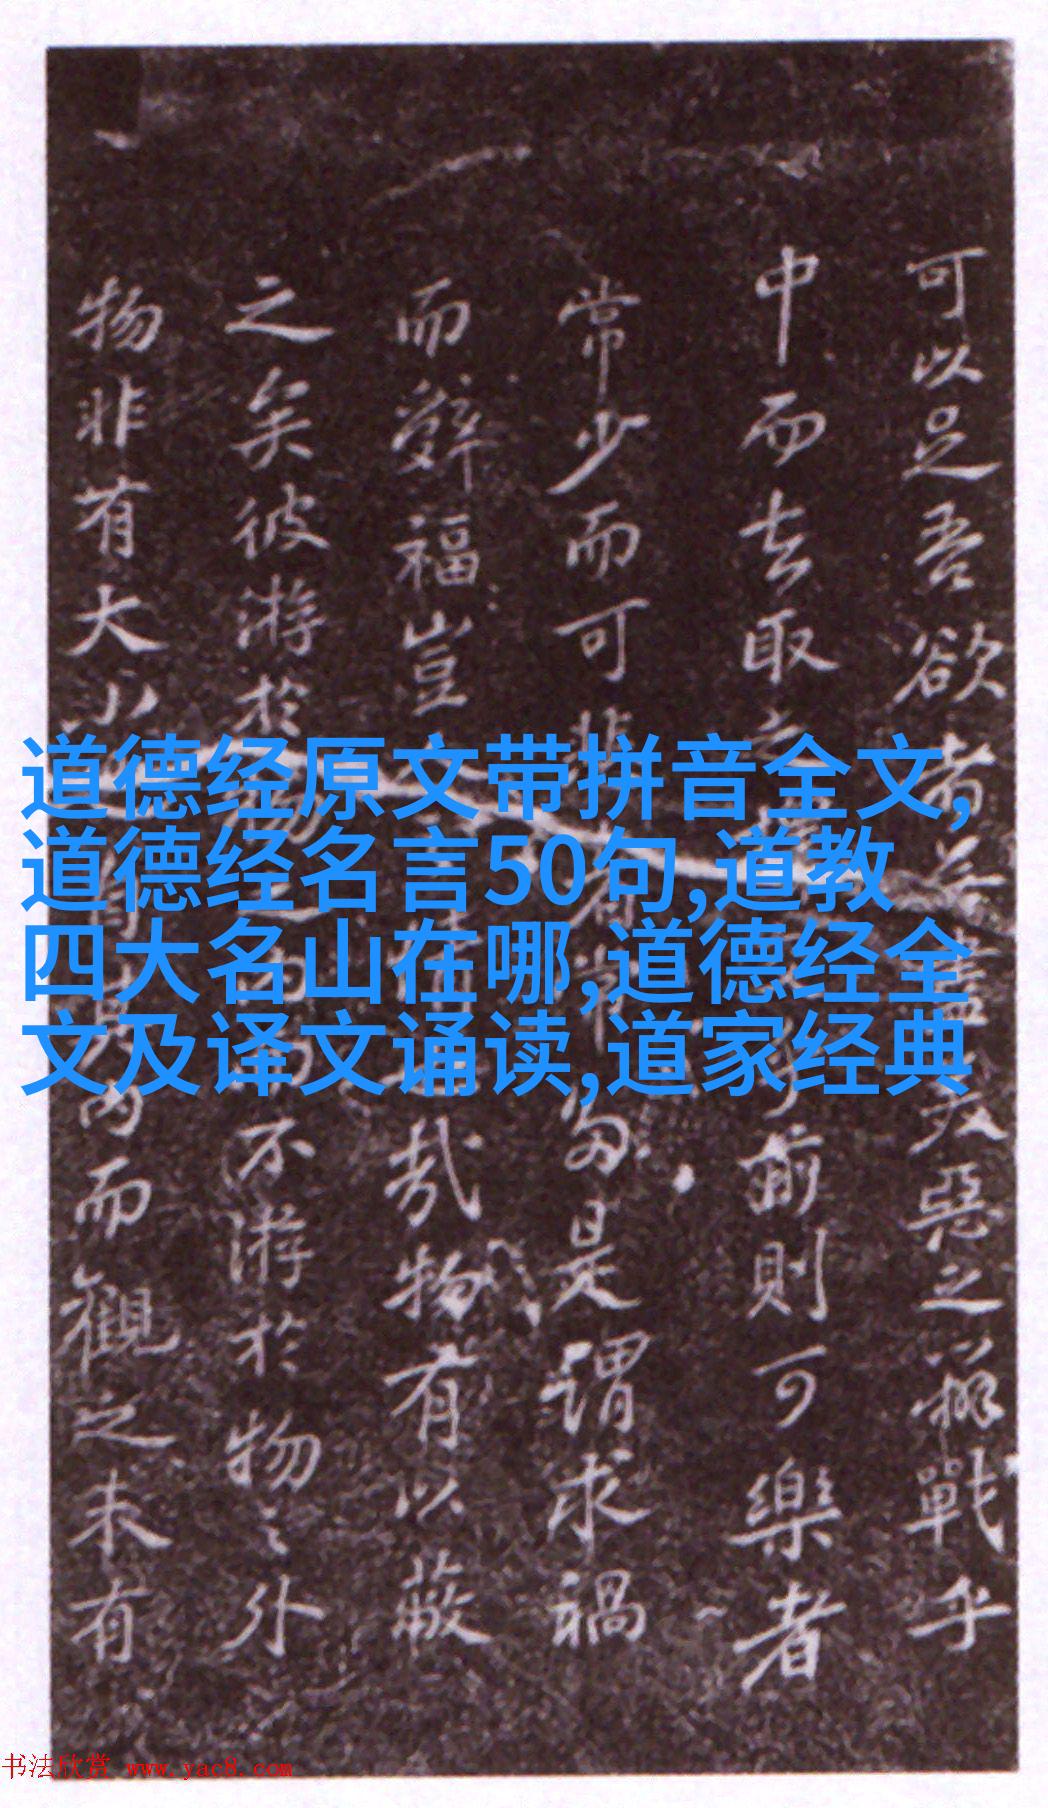 可以足吾欲者美惡之辨戰乎
中而去取前則可樂者
常少而可悲是謂求禍
而辭福豈哉物有以蔽
之矣彼游於不游於物之外
物非有大小內而觀之未有
道德经原文带拼音全文,
道德经名言50句,道教
四大名山在哪,道德经全
文及译文诵读,道家经典
书法欣赏 www.yac8.com